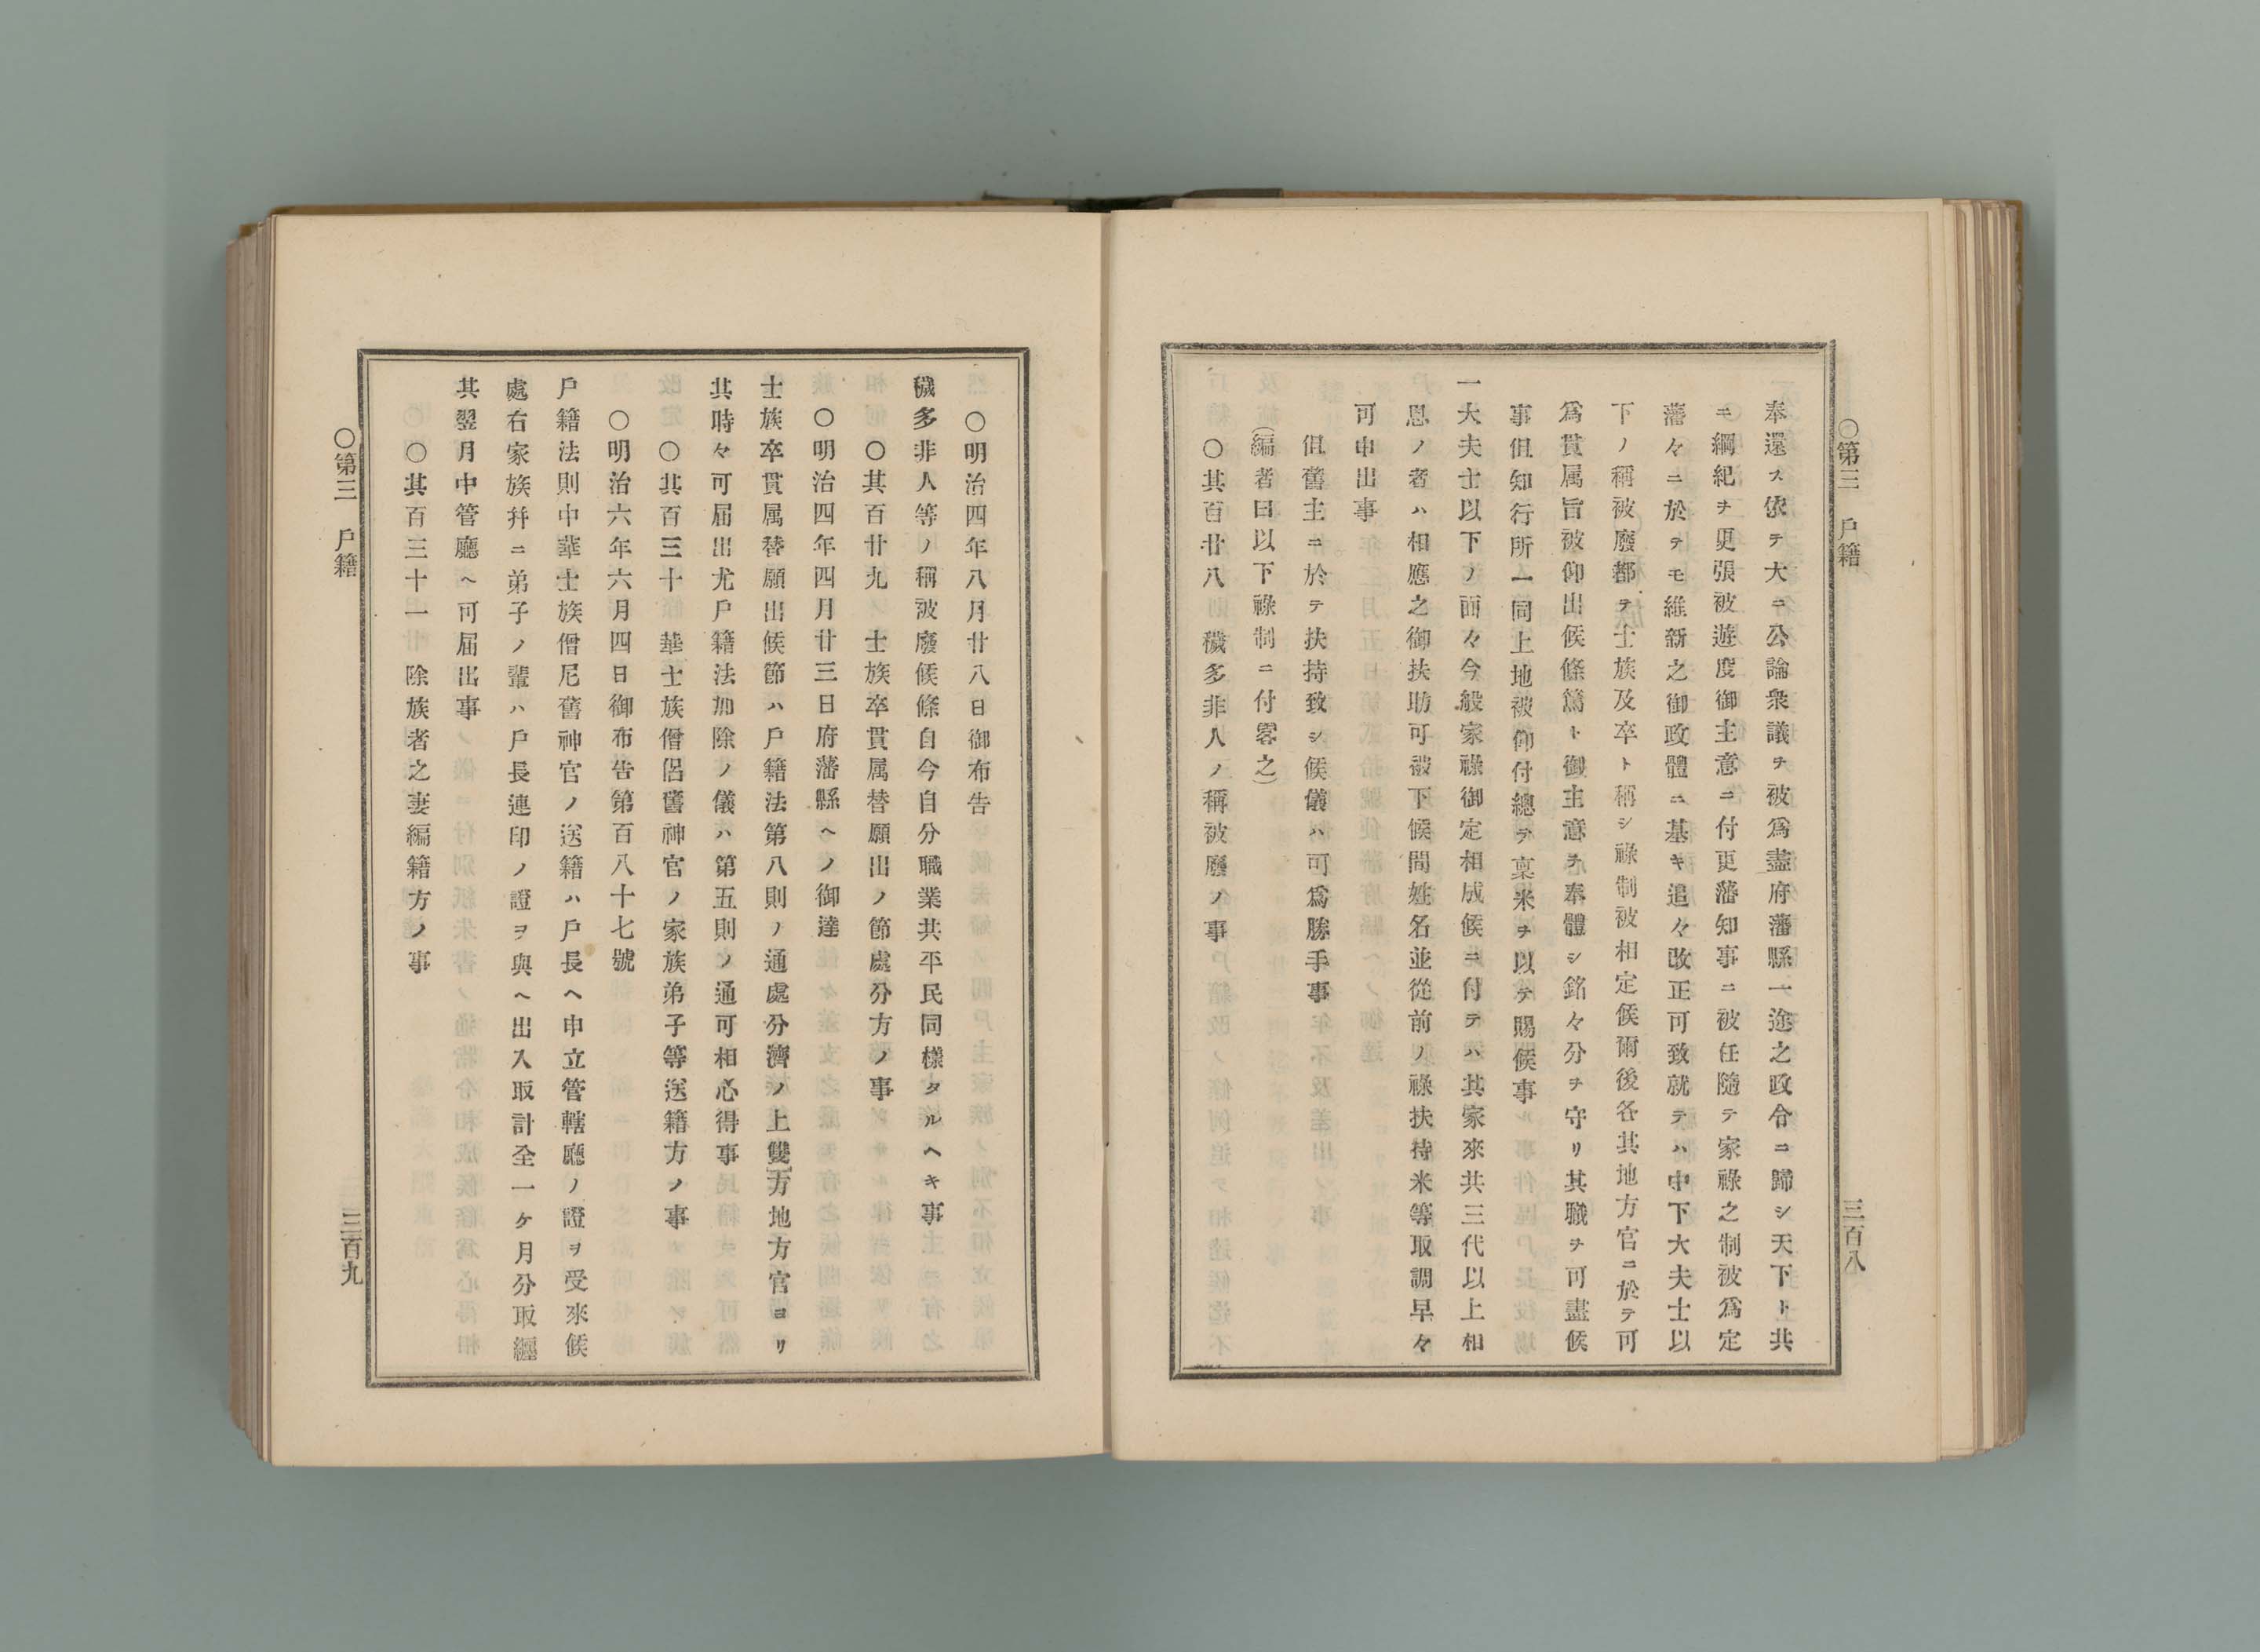 ○第三　戸籍
三百八
奉還ス依テ大ニ公論衆議ヲ被爲盡府藩縣一途之政令ニ歸シ天下ト共
ニ綱紀ヲ更張被遊度御主意ニ付更藩知事ニ被任隨テ家祿之制被爲定
藩々ニ於テモ維新之御政體ニ基キ追々改正可致就テハ中下大夫士以
下ノ稱被廢都テ士族及卒ト稱シ祿制被相定候爾後各其地方官ニ於テ可
爲貫属旨被仰出候條篤ト御主意ヲ奉體シ銘々分ヲ守リ其職ヲ可盡候
事但知行所一同上地被仰付總テ稟米ヲ以テ賜候事
一大夫士以下ノ面々今般家祿御定相成候ニ付テハ其家來共三代以上相
恩ノ者ハ相應之御扶助可被下候間姓名並從前ノ祿扶持米等取調早々
可申出事
但舊主ニ於テ扶持致シ候儀ハ可爲勝手事
（編者曰以下祿制ニ付畧之）
○其百廿八　穢多非人ノ稱被廢ノ事
○明治四年八月廿八日御布告
穢多非人等ノ稱被廢候條自今自分職業共平民同樣タルヘキ事
○其百廿九　士族卒貫属替願出ノ節處分方ノ事
○明治四年四月廿三日府藩縣ヘノ御達
士族卒貫属替願出候節ハ戸籍法第八則ノ通處分濟ノ上雙方地方官ヨリ
其時々可届出尤戸籍法加除ノ儀ハ第五則ノ通可相心得事
○其百三十　華士族僧侶舊神官ノ家族弟子等送籍方ノ事
○明治六年六月四日御布告第百八十七號
戸籍法則中華士族僧尼舊神官ノ送籍ハ戸長ヘ申立管轄廳ノ證ヲ受來候
處右家族幷ニ弟子ノ輩ハ戸長連印ノ證ヲ與ヘ出入取計全一ケ月分取纒
其翌月中管廳ヘ可届出事
○其百三十一　除族者之妻編籍方ノ事
○第三　戸籍
三百九